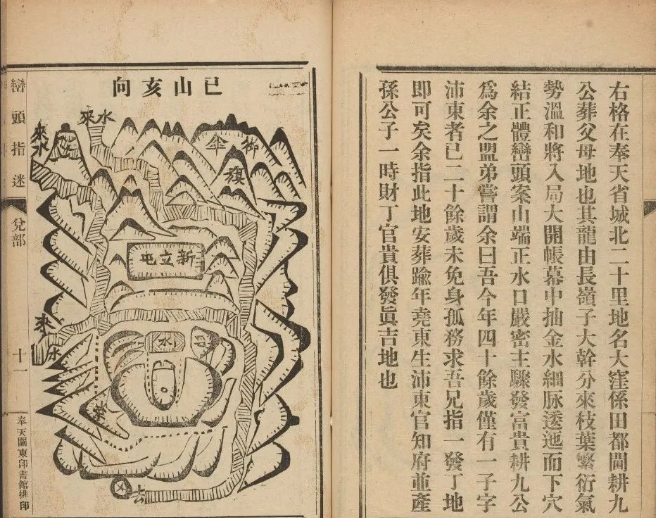 右格在奉天省城北二十里地名大窪係田都閫耕九
公葬父母地也其龍由長嶺子大幹分來枝葉繁衍氣
勢溫和將入局大開帳幕中抽金水細脉透迤而下穴
結正體巒頭案山端正水口嚴密主驟發富貴耕九公
爲余之盟弟嘗謂余曰吾今年四十餘歲僅有一子字
沛東者已二十餘歲未免身孤務求吾兄指一發丁地
即可矣余指此地安葬踰年堯東生沛東官知府並產
孫公子一時財丁官貴俱發眞吉地也
巳山亥向
水來
來水
傘
旗
新立屯
水
印
來水
去
巒頭指迷
兌部
十一
奉天關東印書館排印